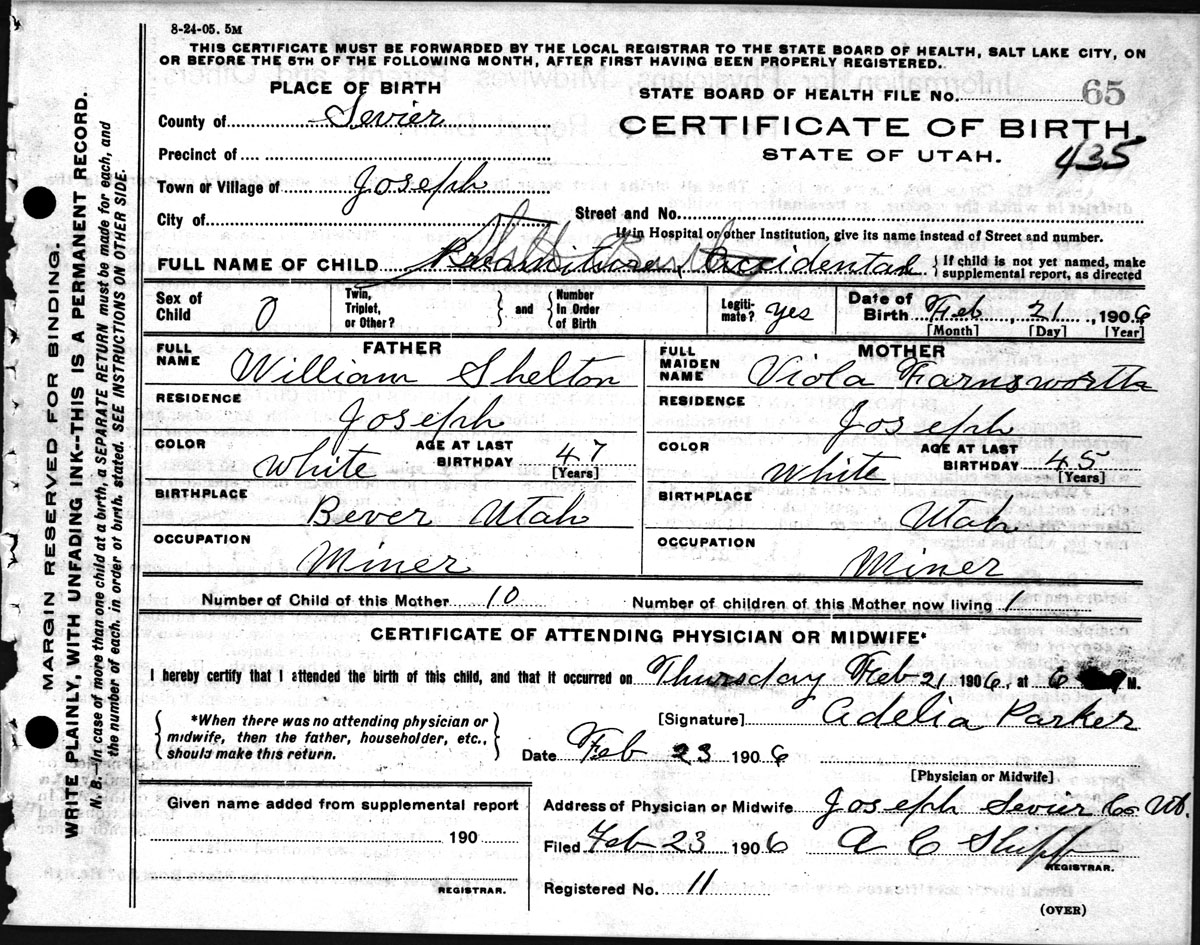 8-24-05. 5M
THIS CERTIFICATE MUST BE FORWARDED BY THE LOCAL REGISTRAR TO THE STATE BOARD OF HEALTH, SALT LAKE CITY, ON
OR BEFORE THE 5TH OF THE FOLLOWING MONTH, AFTER FIRST HAVING BEEN PROPERLY REGISTERED.
PLACE OF BIRTH
STATE BOARD OF HEALTH FILE NO. 65
County of Sevier
CERTIFICATE OF BIRTH.
Precinct of
STATE OF UTAH.
435
Town or Village of Joseph
City of
Street and No.
If in Hospital or other Institution, give its name instead of Street and number.
FULL NAME OF CHILD Accidental { If child is not yet named, make
supplemental report, as directed
Sex of Child 0
Twin, Triplet, or Other? } and { Number In Order of Birth
Legiti-mate? yes
Date of Birth Feb, 21, 1906
[Month] [Day] [Year]
FATHER
FULL NAME William Shelton
RESIDENCE Joseph
COLOR White AGE AT LAST BIRTHDAY 47 [Years]
BIRTHPLACE Bever Utah
OCCUPATION Miner
MOTHER
FULL MAIDEN NAME Viola Farnsworth
RESIDENCE Joseph
COLOR White AGE AT LAST BIRTHDAY 45 [Years]
BIRTHPLACE Utah
OCCUPATION Miner
Number of Child of this Mother 10 Number of children of this Mother now living 1
CERTIFICATE OF ATTENDING PHYSICIAN OR MIDWIFE*
I hereby certify that I attended the birth of this child, and that it occurred on Thursday Feb 21 1906, at 6 M.
{ *When there was no attending physician or
midwife, then the father, householder, etc.,
should make this return. }
[Signature] Adelia Parker
Date Feb 23 1906
[Physician or Midwife]
Given name added from supplemental report
190
REGISTRAR.
Address of Physician or Midwife Joseph Sevier Co Ut.
Filed Feb 23 1906 A C
REGISTRAR.
Registered No. 11
(OVER)
MARGIN RESERVED FOR BINDING.
WRITE PLAINLY, WITH UNFADING INK--THIS IS A PERMANENT RECORD.
N. B.—In case of more than one child at a birth, a SEPARATE RETURN must be made for each, and
the number of each, in order of birth, stated. SEE INSTRUCTIONS ON OTHER SIDE.